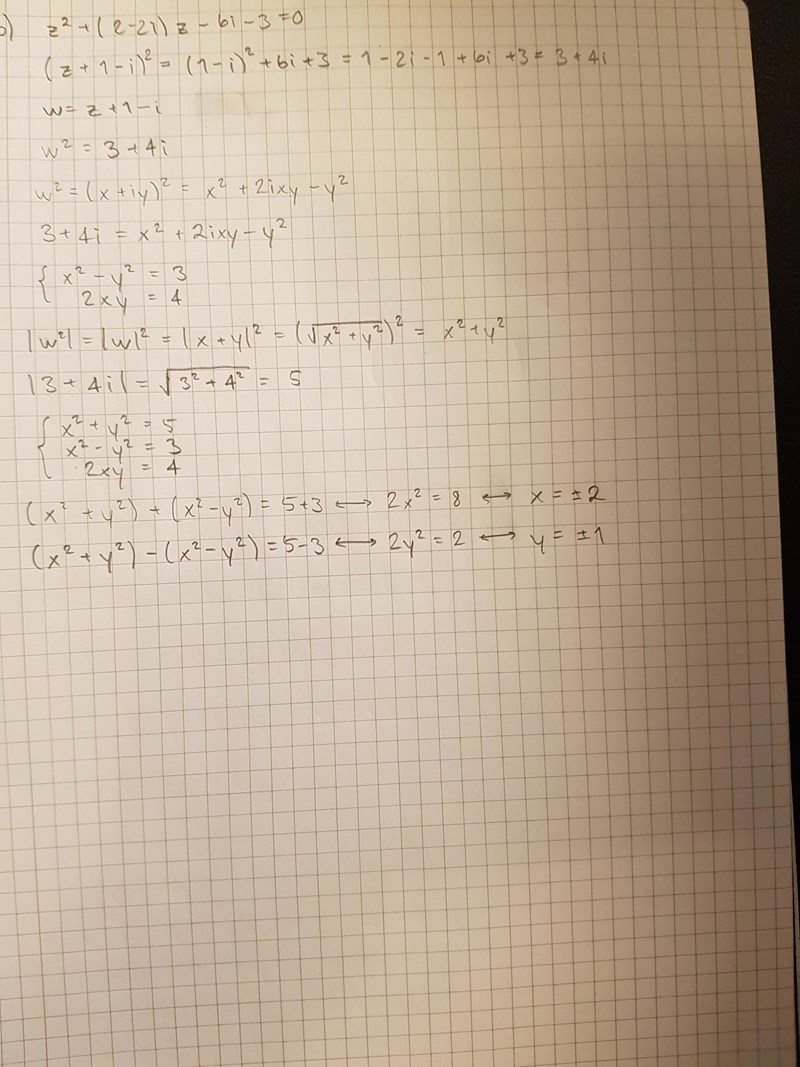 b) z² + (2-2i) z - 6i - 3 = 0
(z + 1 - i)² = (1-i)² + 6i + 3 = 1 - 2i - 1 + 6i + 3 = 3 + 4i
w = z + 1 - i
w² = 3 + 4i
w² = (x + iy)² = x² + 2ixy - y²
3 + 4i = x² + 2ixy - y²
{ x² - y² = 3
2xy = 4
|w²| = |w|² = |x + y|² = (√(x² + y²))² = x² + y²
|3 + 4i| = √(3² + 4²) = 5
{ x² + y² = 5
x² - y² = 3
2xy = 4
(x² + y²) + (x² - y²) = 5+3 ⟷ 2x² = 8 ⟷ x = ±2
(x² + y²) - (x² - y²) = 5-3 ⟷ 2y² = 2 ⟷ y = ±1